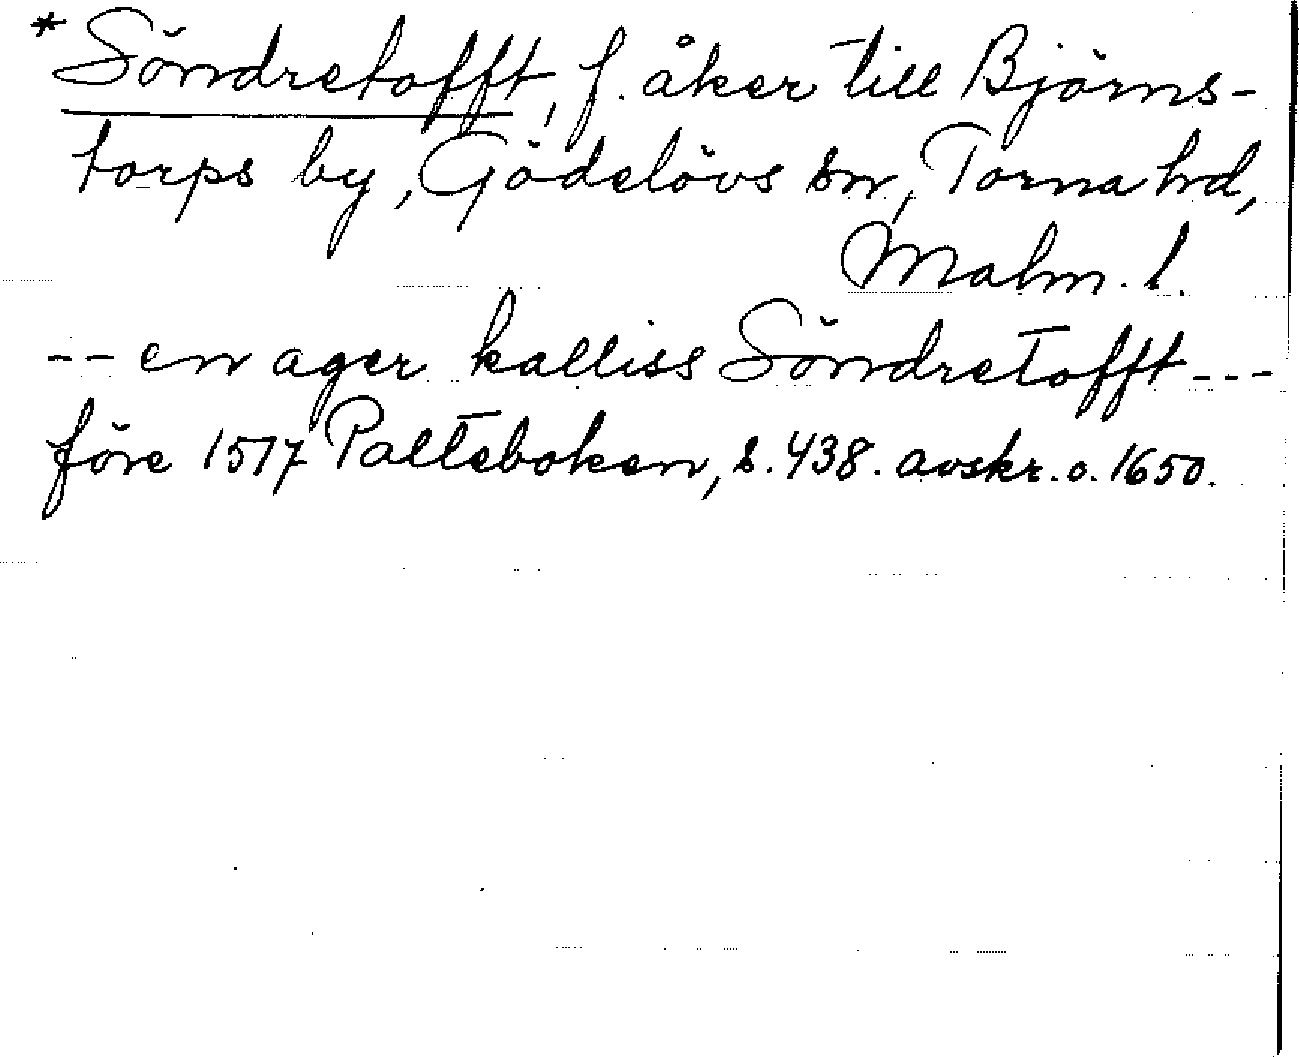 *Söndretofft, f. åker till Björns-
torps by, Gödelövs sn, Torna hd,
Malm. l.
-- en ager kalliss Söndretofft ---
före 1517 Palteboken, s. 438. avskr. o. 1650.